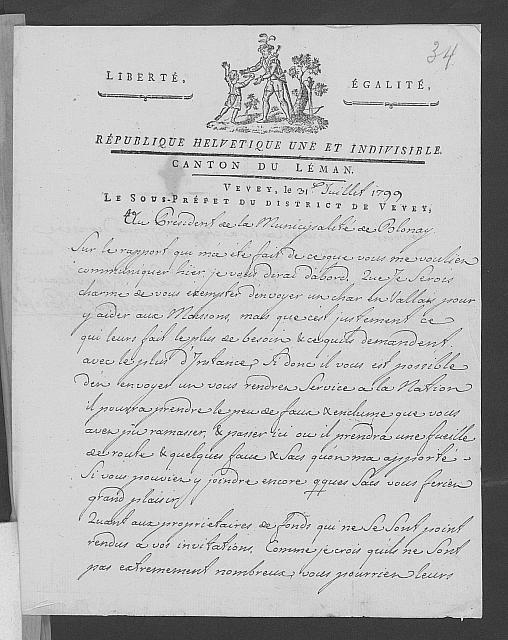 34
LIBERTÉ,
ÉGALITÉ,
RÉPUBLIQUE HELVETIQUE UNE ET INDIVISIBLE.
CANTON DU LÉMAN.
VEVEY, le 31e Juillet 1799
LE SOUS-PRÉFET DU DISTRICT DE VEVEY,
Au President de la Municipalité de Blonay
Sur le rapport qui m'a été fait de ce que vous me vouliez
communiquer hier, je vous dirai d'abord. Que Je Serois
charmé de vous exempter d'envoyer un char en Vallais pour
y aider aux Moissons, mais que c'est justement ce
qui leurs fait le plus de besoin & ce qu'ils demandent
avec le plus d'Instance, Si donc il vous est possible
d'en envoyer un vous rendrez Service a la Nation
il pourra prendre le peu de faux & enclume que vous
avez pû ramasser, & passer ici ou il prendra une fueille
de route & quelques faux & Sacs qu'on m'a apporté.
Si vous pouviez y joindre encore qques Sacs vous feriez
grand plaisir,
Quant aux proprietaires de fonds qui ne Se Sont point
rendus a vos invitations, Comme je crois qu'ils ne Sont
pas extremement nombreux, vous pourriez leurs